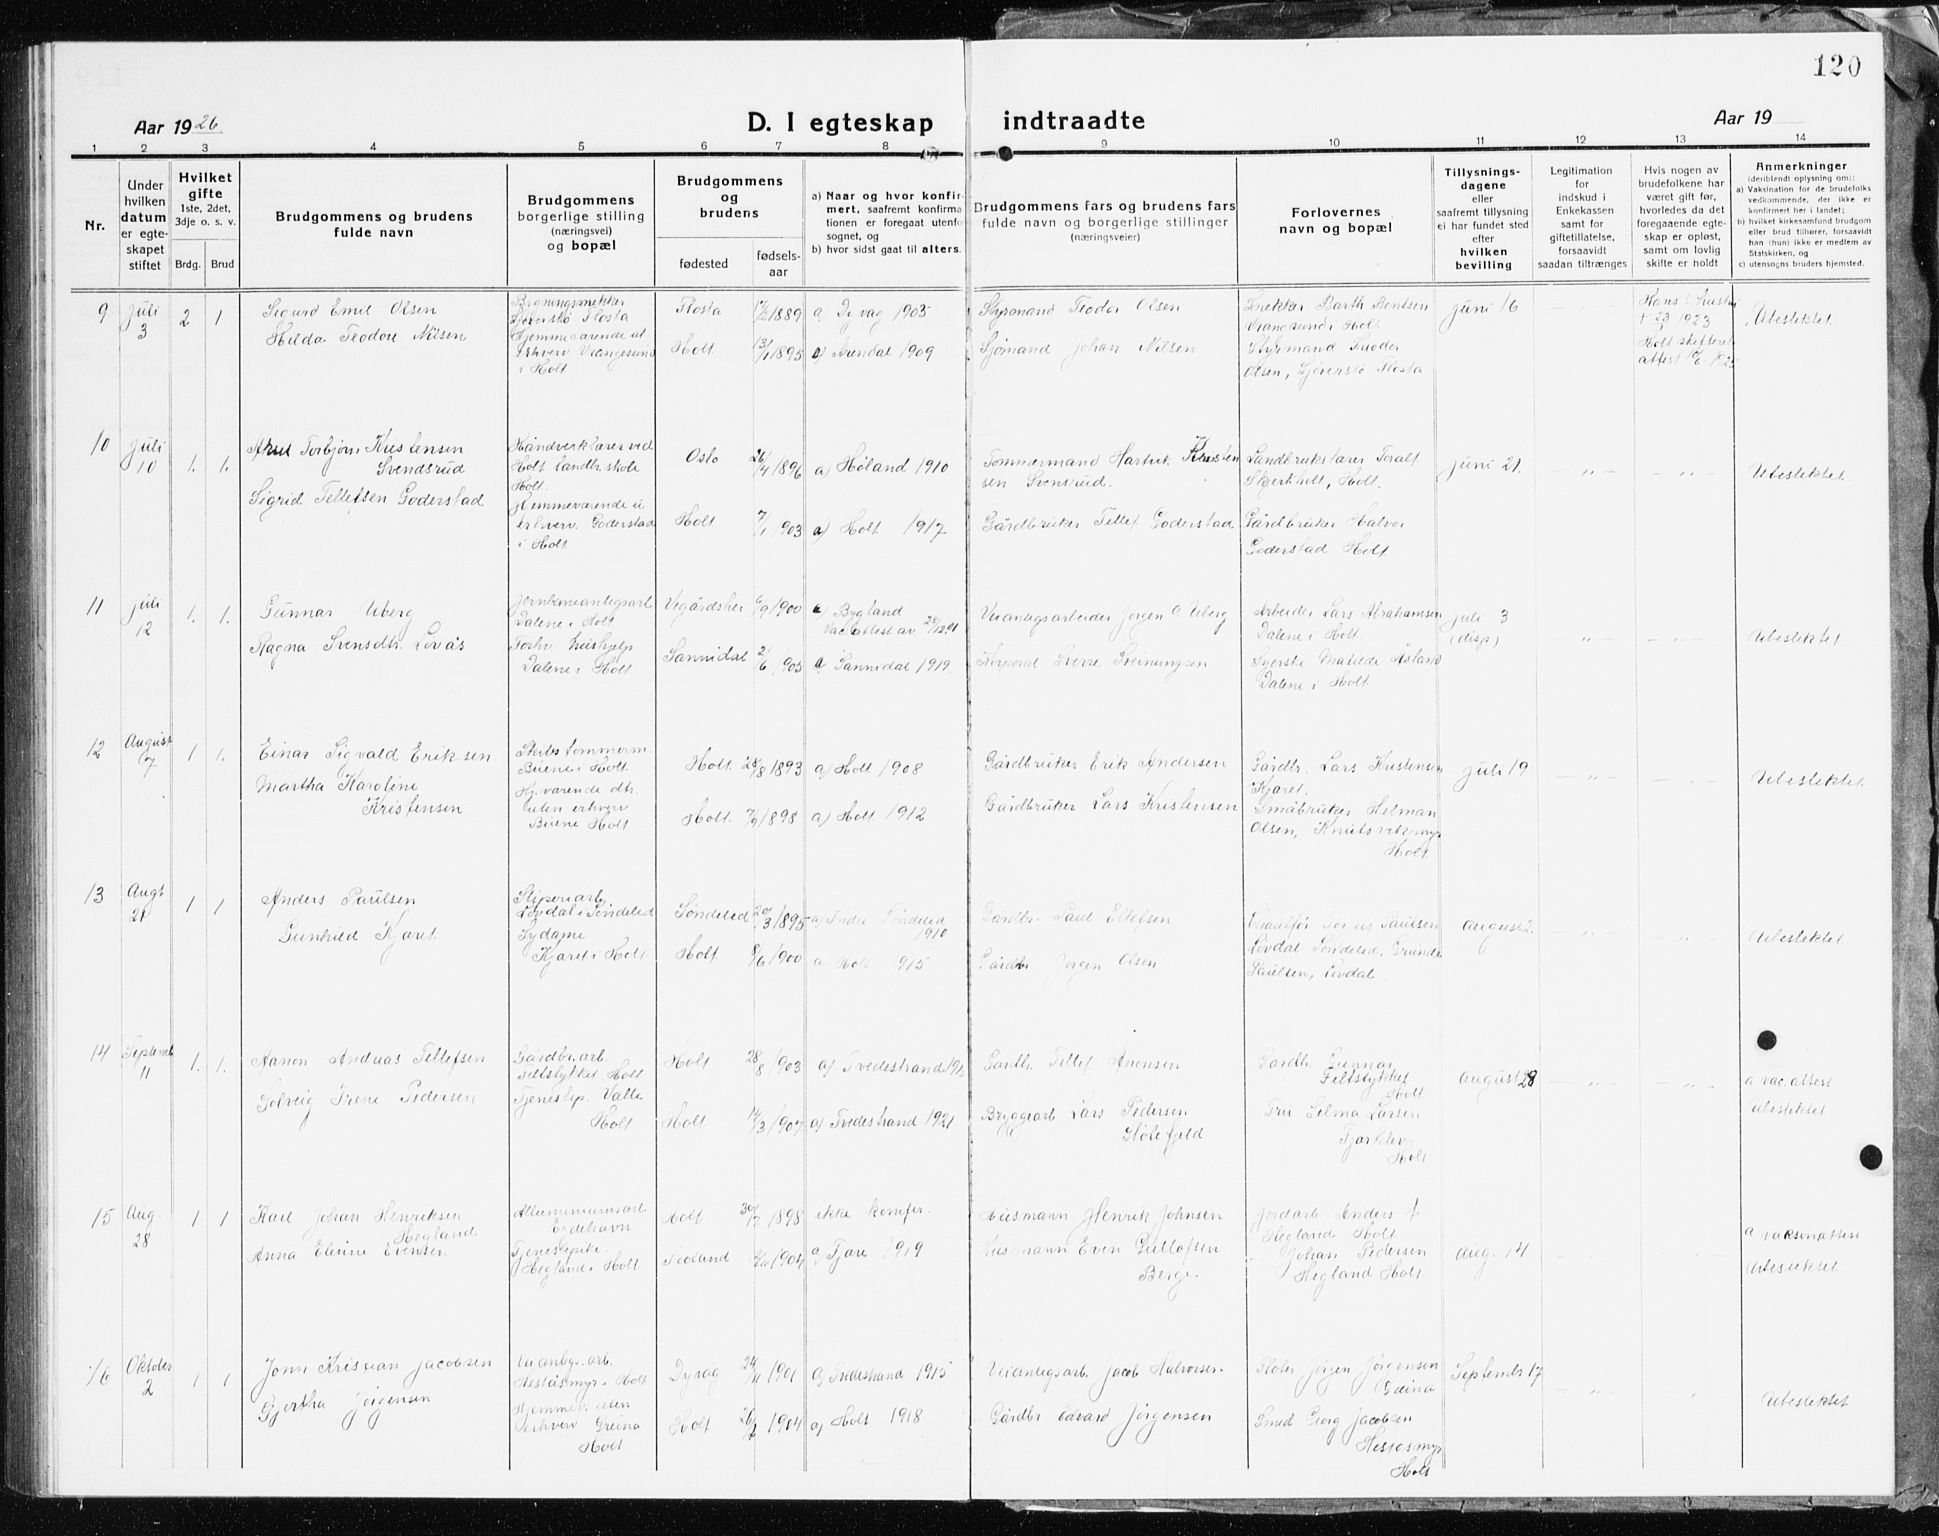 120
Aar 1926
D. I egteskap indtraadte
Aar 19
1 2 3 4 5 6 7 8 9 10 11 12 13 14
Nr.
Under
hvilken
datum
er egte-
skapet
stiftet
Hvilket
gifte
1ste, 2det,
3dje o. s. v.
Brdg. Brud
Brudgommens og brudens
fulde navn
Brudgommens
borgerlige stilling
(næringsvei)
og bopæl
Brudgommens
og
brudens
fødested
fødsels-
aar
a) Naar og hvor konfir-
mert, saafremt konfirma-
tionen er foregaat utenfor
sognet, og
b) hvor sidst gaat til alters.
Brudgommens fars og brudens fars
fulde navn og borgerlige stillinger
(næringsveier)
Forlovernes
navn og bopæl
Tillysnings-
dagene
eller
saafremt tillysning
ei har fundet sted
efter
hvilken
bevilling
Legitimation
for
indskud i
Enkekassen
samt for
giftetillatelse,
forsaavidt
saadan tiltrænges
Hvis nogen av
brudefolkene har
været gift før,
hvorledes da det
foregaaende egte-
skap er opløst,
samt om lovlig
skifte er holdt
Anmerkninger
(deriblendt oplysning om):
a) Vaksination for de brudefolks
vedkommende, der ikke er
konfirmert her i landet;
b) hvilket kirkesamfund brudgom
eller brud tilhører, forsaavidt
han (hun) ikke er medlem av
Statskirken, og
c) utensogns bruders hjemsted.
9
Juli
3
2 1
Sigurd Emil Olsen
Hilda Teodore Nilsen
Flosta
Hjemmeværende ut
erhverv Vrangesund
i Holt
Flosta 1889
Holt 1895
a) Dyvag 1905
a) Arendal 1909
Styrmand Teodor Olsen
Sjømand Johan Nilsen
Snekker Barth Bentsen
Vrangsund i Holt
Styrmand
Olsen, Flosta
Juni 16
1923
Holt
attest
Ubeslektet
10
Juli
10
1. 1.
Torbjørn Kristensen
Svendsrud
Sigrid Tellefsen Goderstad
Håndverklærer ved
Holt landbr. skole
Holt.
Hjemmeværende u
erhverv. Goderstad
i Holt
Oslo 26/4 1896
Holt 7/1 1903
a) Høland 1910
a) Holt 1917
Tømmermand Hartvik Kristen
sen Svensrud.
Gårdbruker Tellef Goderstad
Landbrukslærer Toralf
Skjerkholt, Holt.
Gårdbruker Halvor
Goderstad Holt
Juni 21.
Ubeslektet
11
Juli
12
1. 1.
Gunnar Uberg
Ragna Svensdtr. Lovås
Jernbaneanlegsarb
Dalene i Holt.
Forhv. hushjelp
Dalene i Holt
Vegårdshei 6/9 1900
Sannidal 21/6 1905
a) Bygland
Vac. attest av
a) Sannidal 1919.
Veianlegsarbeider Jørgen O. Uberg
Korporal Sverre Sveinungsen
Arbeider Lars Abrahamsen
Dalene i Holt.
Syerske Matilde Åsland
Dalene i Holt.
Juli 3
(disp)
Ubeslektet
12
August
7
1 1.
Einar Sigvald Eriksen
Martha Karoline
Kristensen
Skibstømmerm.
Buene i Holt
Hj. værende dtr.
uten erhverv
Buene Holt
Holt 28/8 1893
Holt 7/9 1898
a) Holt 1908
a) Holt 1912
Gårdbruker Erik Andersen
Gårdbruker Lars Kristensen
Gårdbr. Lars Kristensen
Kjaret.
Småbruker Helman
Olsen, Knutsvikmyr
Holt
Juli 19
Ubeslektet
13
Augt
21
1 1
Anders Paulsen
Gunhild Kjaret
Stiperiarb.
Løvdal i Søndeled
Sydame
Kjaret i Holt
Søndeled 20/3 1895
Holt 8/6 1900
a) Indre Søndeled
1910
a) Holt 1915
Gardbr. Paul Ellefsen
Gårdbr. Jørgen Olsen
Paulsen
Løvdal Søndeled.
Paulsen, Løvdal.
August 2.
Ubeslektet
14
Septemb.
11
1. 1.
Aanon Andreas Tellefsen
Solveig Irene Pedersen
Gårdbr. arb.
Feltstykket Holt
Tjenestep. Valle
Holt
Holt 28/8 1903
Holt 14/3 1907
a) Tvedestrand
a) Tvedestrand 1921
Gardb. Tellef Anonsen
Bryggearb Lars Pedersen
Gardb. Gunnar
Feltstykket
Holt
Fru Selma Larsen
Holt
August 28
a vac. attest
Ubeslektet.
15
Aug.
28
1 1
Karl Johan Henriksen
Hegland
Anna Elevine Evensen
Alluminiumsarb.
Eydehavn
Tjenestepike.
Hegland i Holt
Holt 30/12 1898
Froland 1904
ikke konfir.
a) Fjære 1919
Husmann. Henrik Johnsen
Husmann Even Gullofsen
Berge
Jordarb Anders
Hegland Holt
Johan Pedersen
Hegland Holt
Aug. 14
a vaksinattest
Ubeslektet.
16
Oktober
2
1 1
John Kristian Jacobsen
Gjertha Jørgensen
Veianlegs. arb.
Heståsmyr i Holt
Hjemmev. uten
erhverv Greina
Holt
Dyvåg 24/11 1901
Holt 1904
a) Tvedestrand 1915
a) Holt 1918
Veianlegsarb. Jacob Halvorsen
Gårdbr Edvard Jørgensen
Fløter Jørgen Jørgensen
Greina
Smed Georg Jacobsen
Heståsmyr
Holt
September 17
Ubeslektet